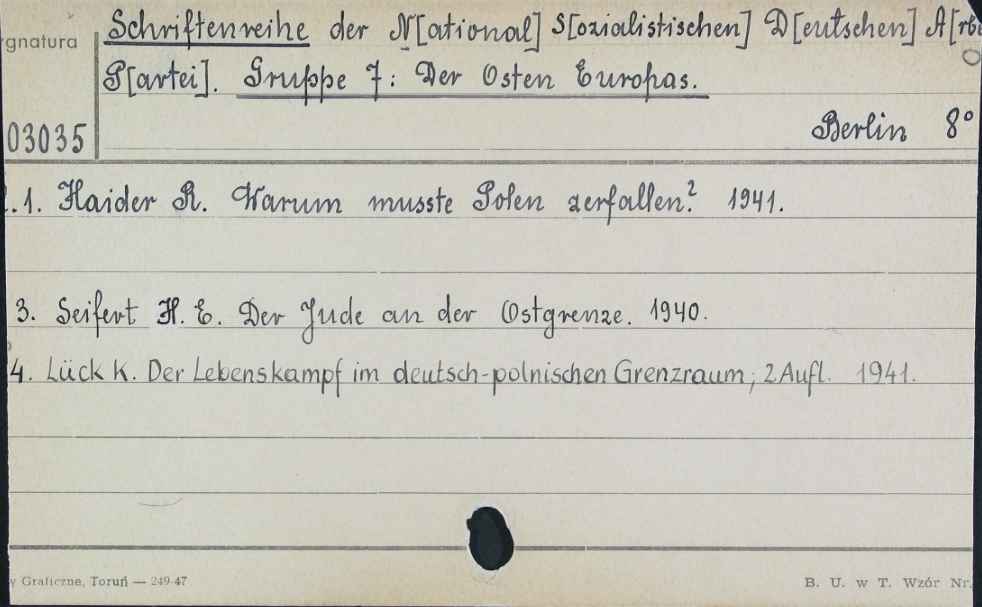 gnatura Schriftenreihe der N[ational] S[ozialistischen] D[eutschen] A[rbe
P[artei]. Gruppe 7: Der Osten Europas.
03035 Berlin 8°
.1. Haider R. Warum musste Polen zerfallen? 1941.
3. Seifert H. E. Der Jude an der Ostgrenze. 1940.
4. Lück K. Der Lebenskampf im deutsch-polnischen Grenzraum; 2 Aufl. 1941.
y Graficzne, Toruń — 249-47 B. U. w T. Wzór Nr.